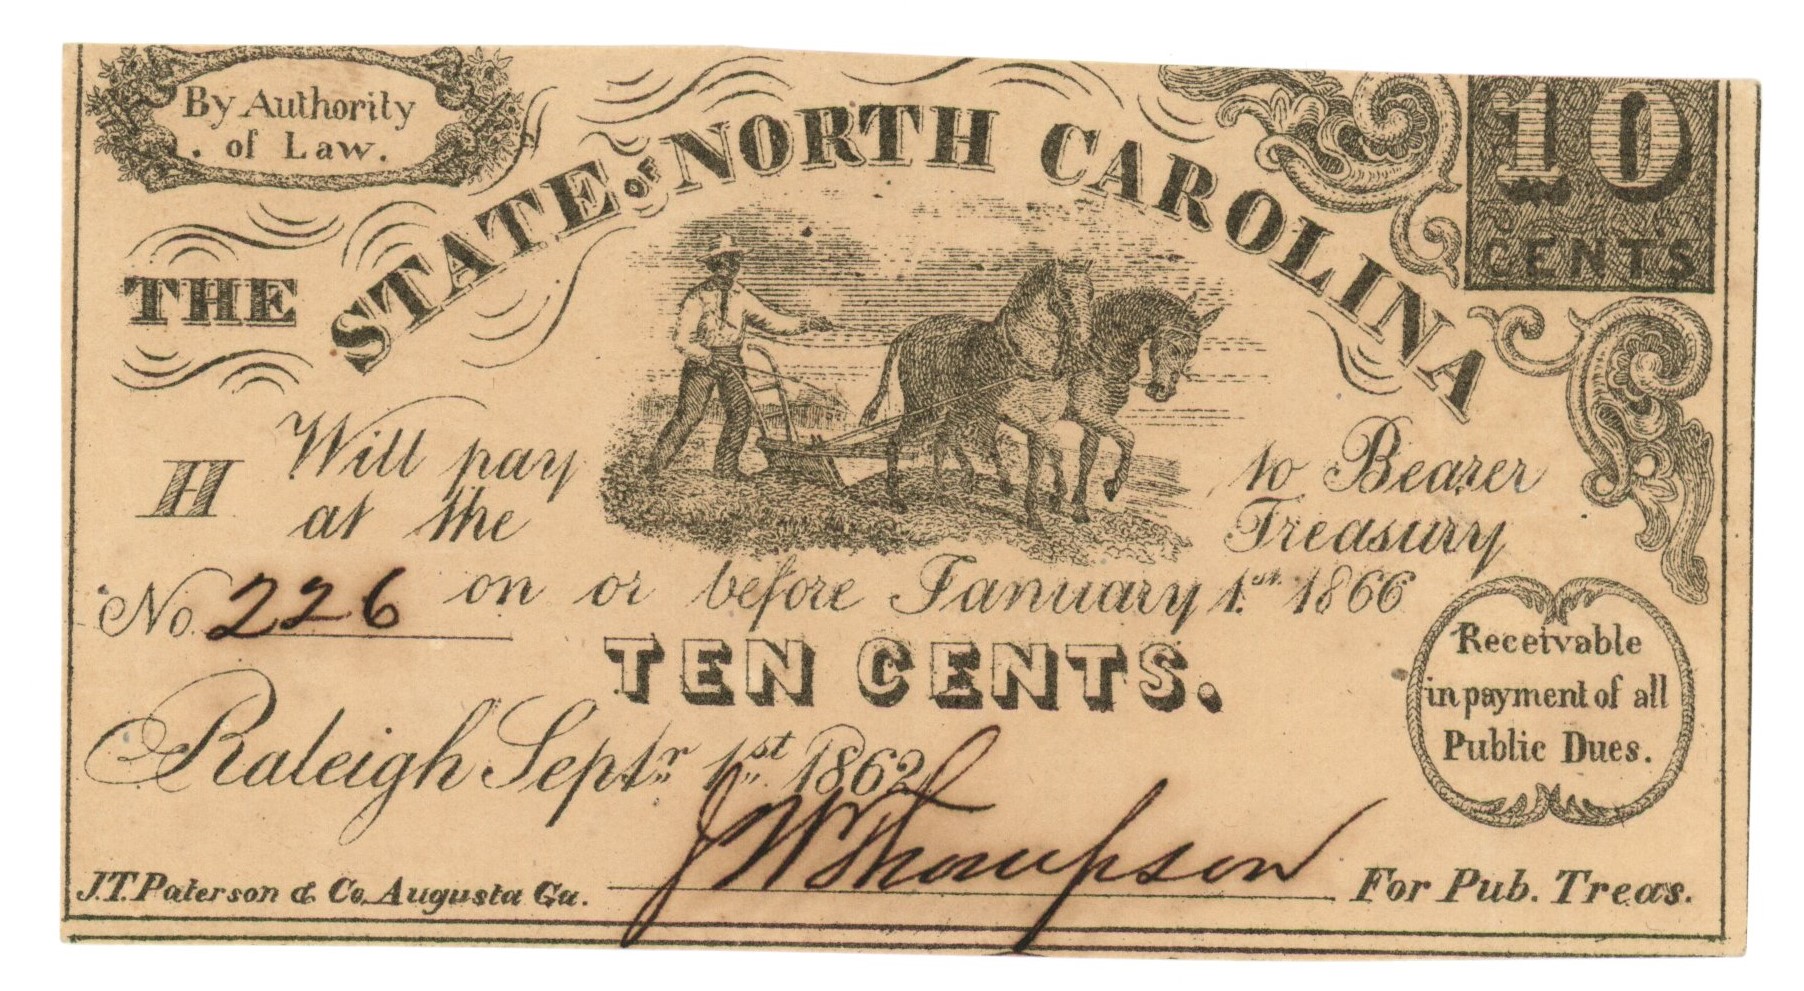 By Authority
of Law.
10
CENTS
THE STATE OF NORTH CAROLINA
H
Will pay to Bearer
at the Treasury
No. 226 on or before January 1st. 1866
TEN CENTS.
Receivable
in payment of all
Public Dues.
Raleigh Septr. 1st. 1862
J W Thompson
J.T. Paterson & Co. Augusta Ga.
For Pub. Treas.